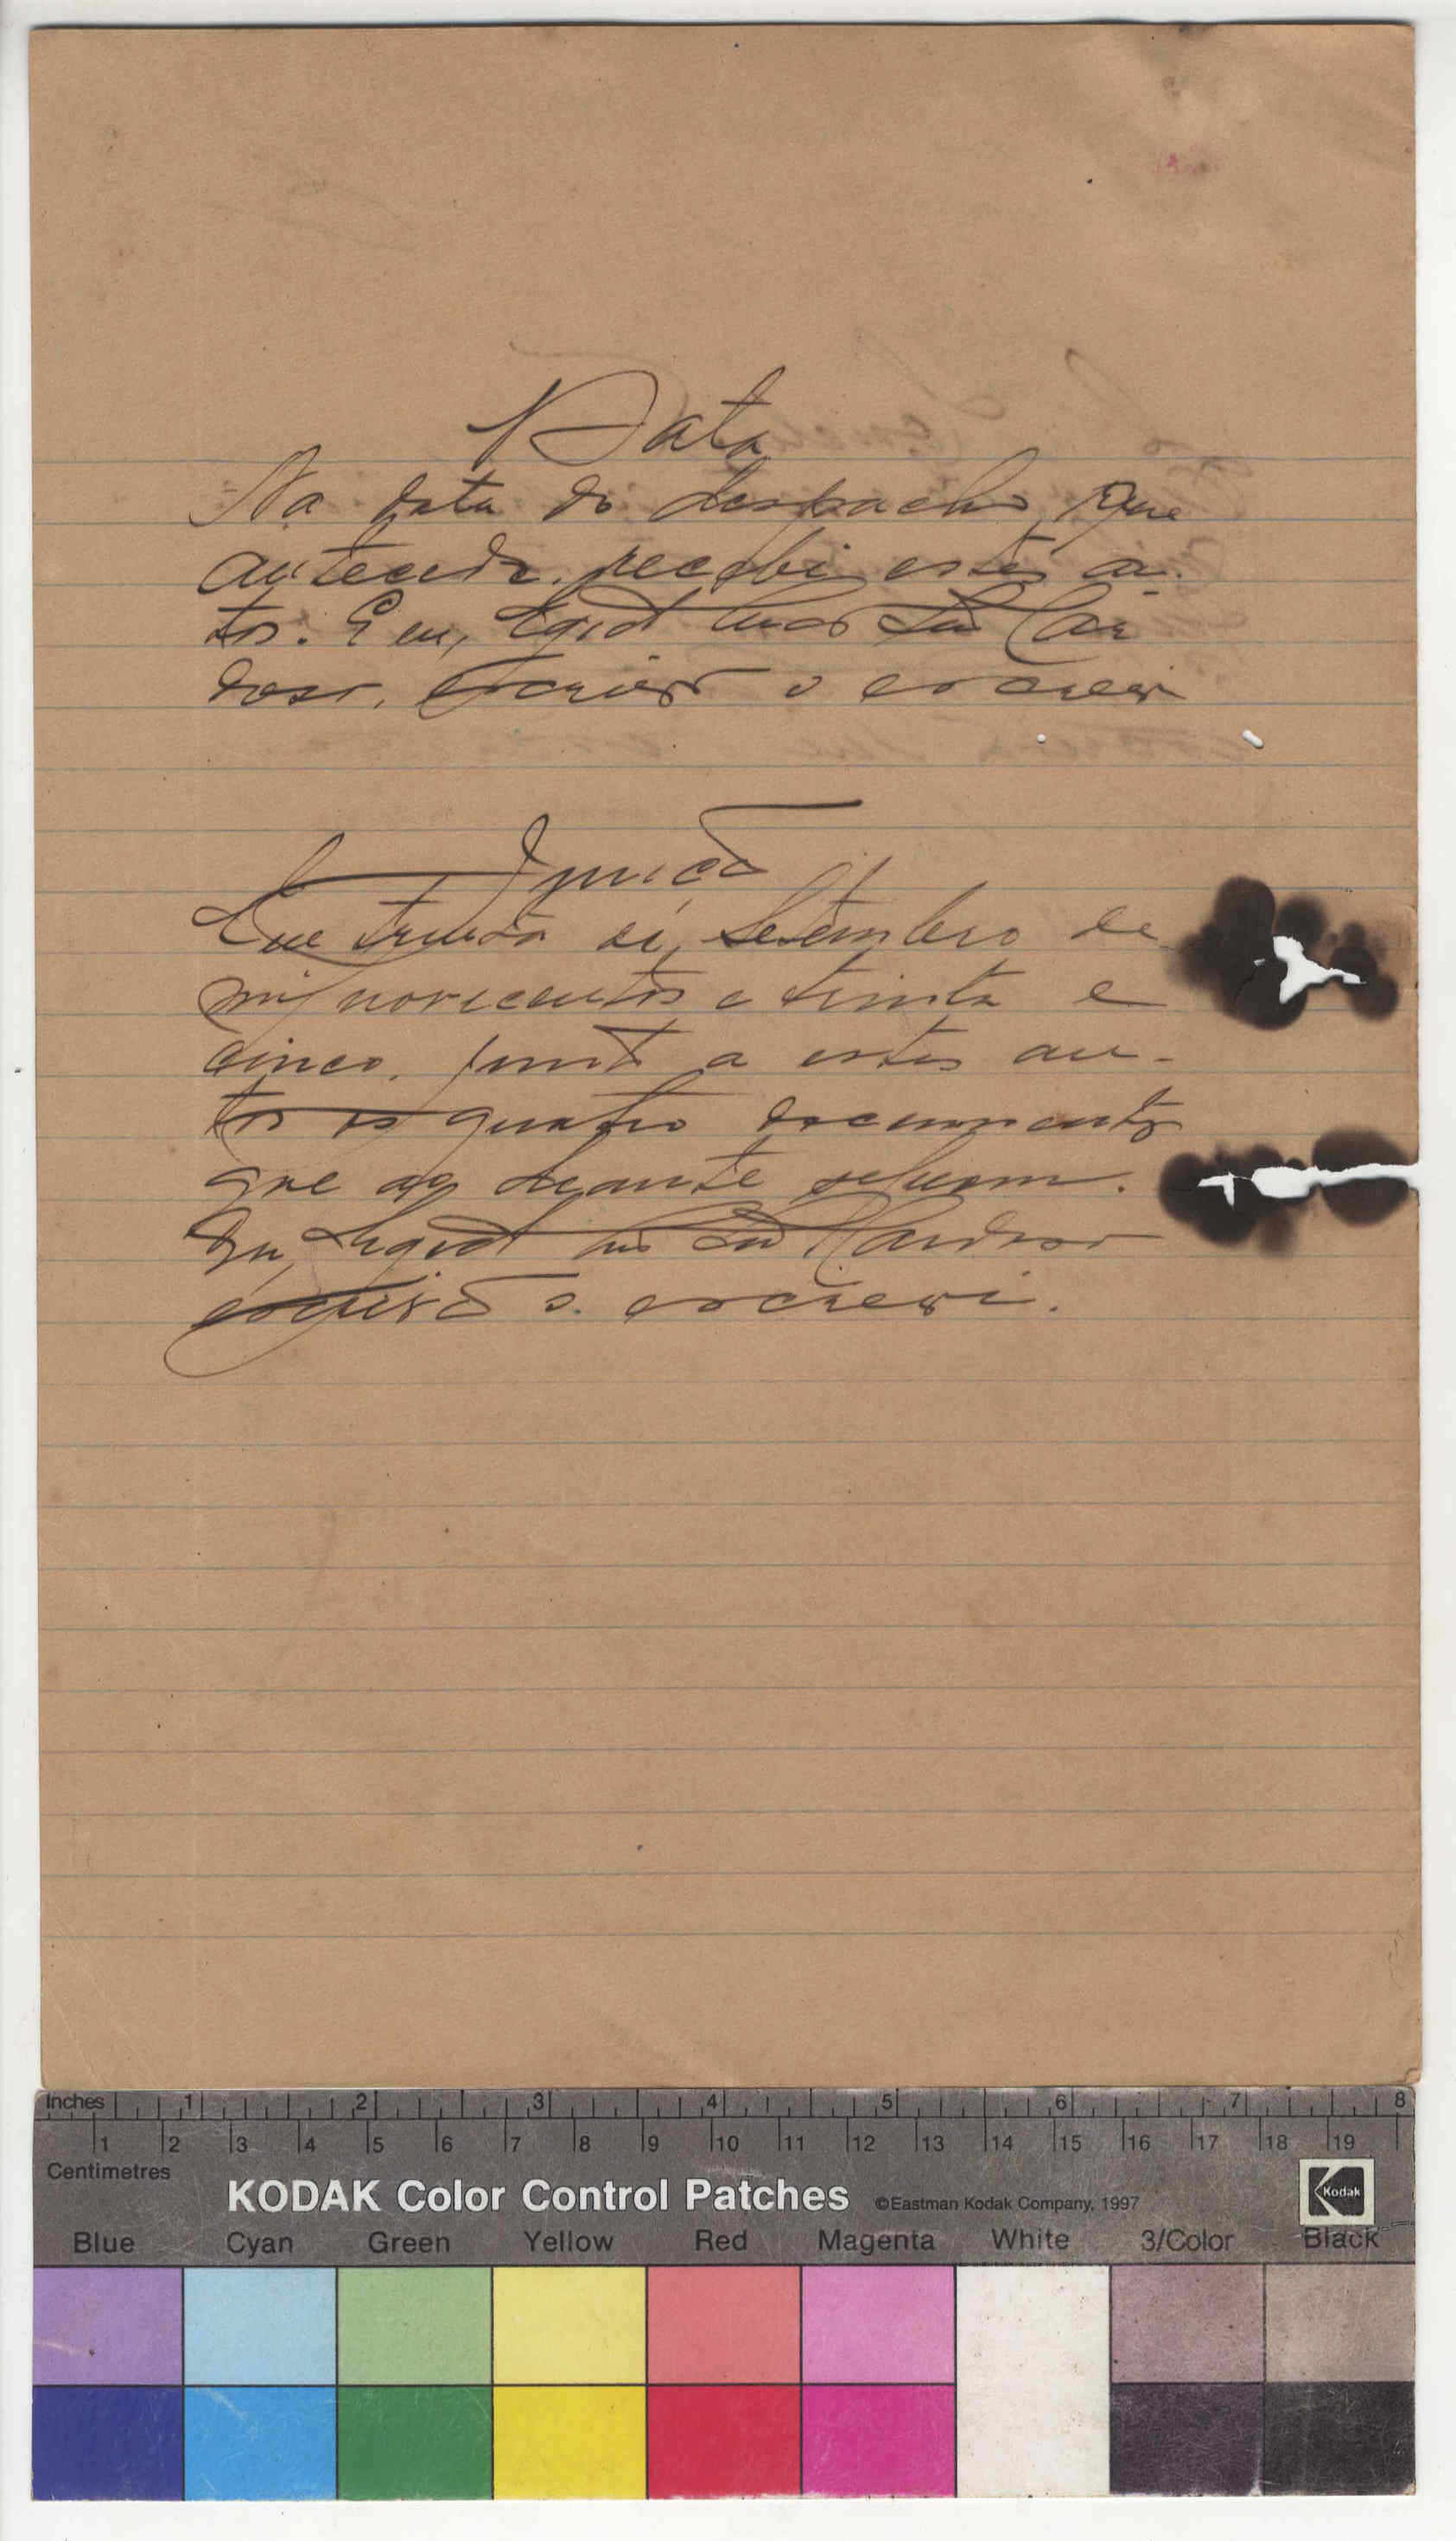 Data
Na data do despacho que
antecede. recebi estes au-
tos. Eu, Egidt Car
doso, escrivão o escrevi
Junção
Em trinta de Setembro de
mil novecentos e trinta e
cinco. junto a estes au-
tos os quatro documentos
que ao deante seguem.
Eu, Cardoso
escrivão o. escrevi.
Inches 1 2 3 4 5 6 7 8
1 2 3 4 5 6 7 8 9 10 11 12 13 14 15 16 17 18 19
Centimetres
KODAK Color Control Patches ©Eastman Kodak Company, 1997 Kodak
Blue Cyan Green Yellow Red Magenta White 3/Color Black